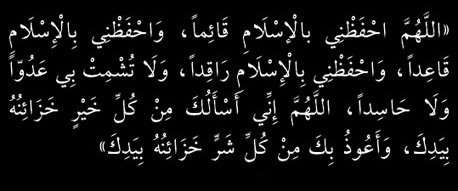 «اللَّهُمَّ احْفَظْنِي بالْإسْلَامِ قَائِماً، وَاحْفَظْنِي بِالْإسْلَامِ
قَاعِداً، وَاحْفَظْنِي بِالْإِسْلَامِ رَاقِداً، وَلَا تُشْمِتْ بِي عَدُوّاً
وَلَا حَاسِداً، اللَّهُمَّ إِنِّي أَسْأَلُكَ مِنْ كُلِّ خَيْرٍ خَزَائِنُهُ
بِيَدِكَ، وَأَعُوذُ بِكَ مِنْ كُلِّ شَرٍّ خَزَائِنُهُ بِيَدِكَ»